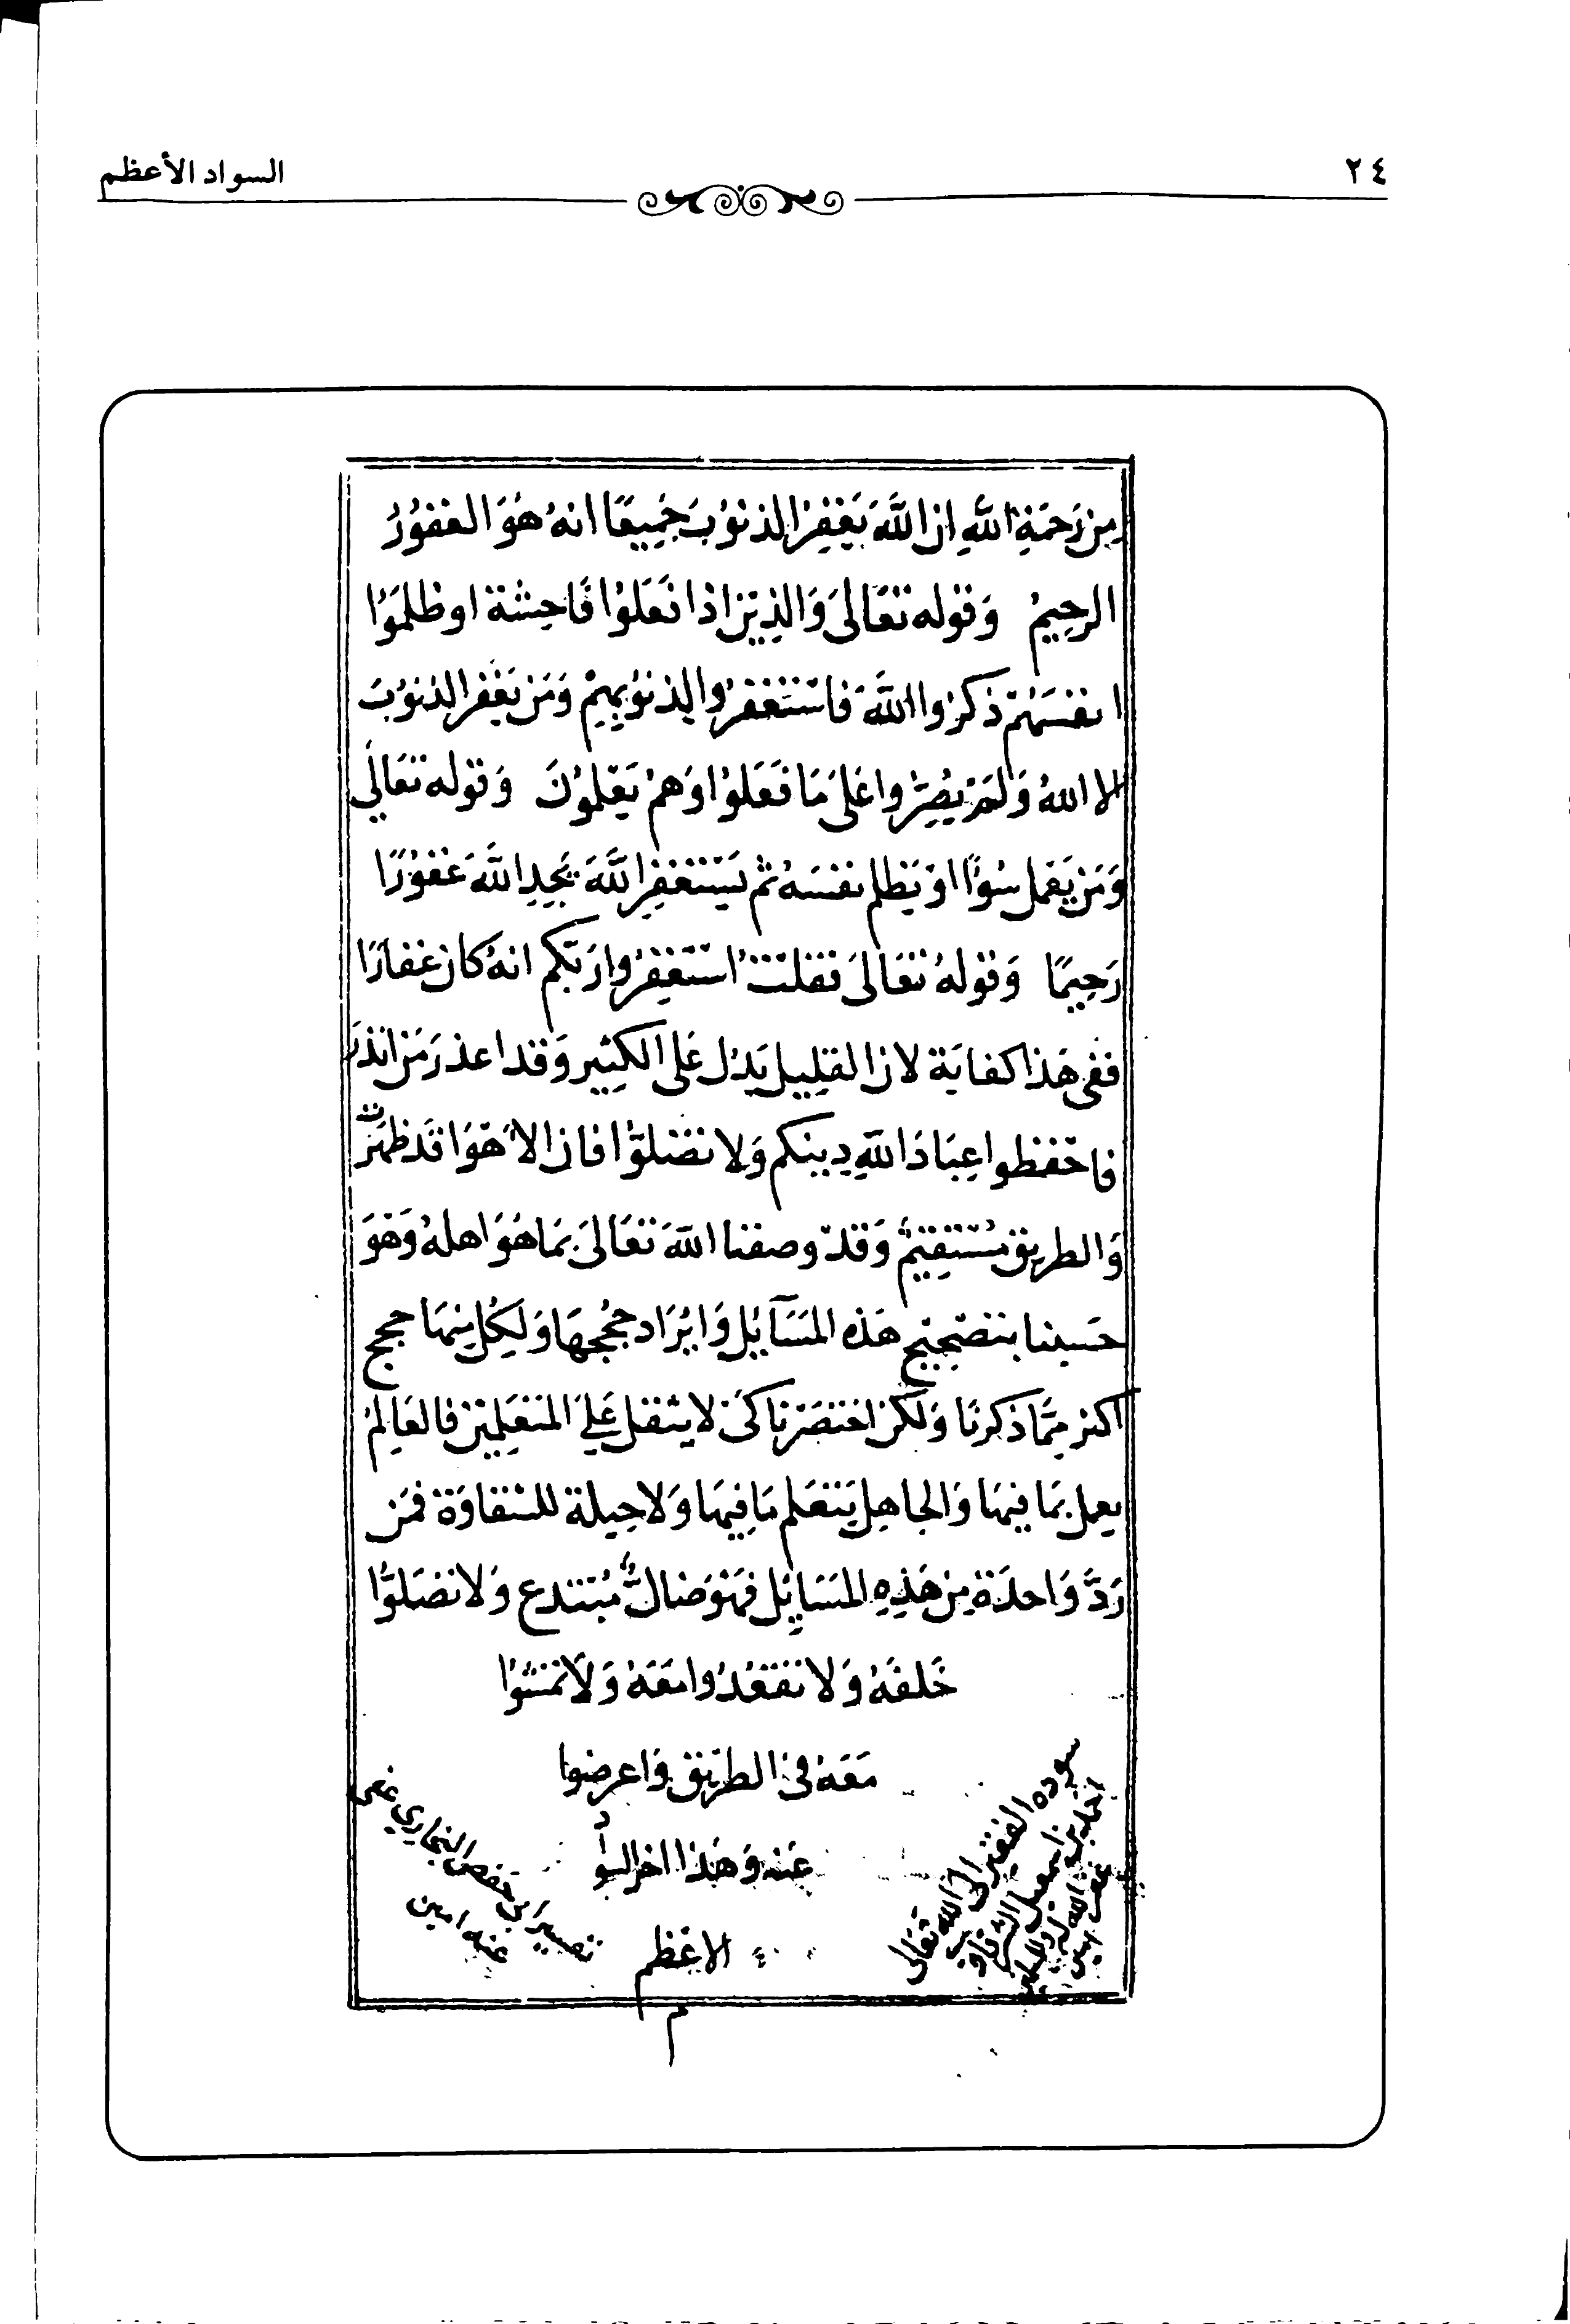 ٢٤
السواد الأعظم
مِن رَحمَةِ اللَّهِ ان اللَّهَ يَغفِرُ الذنوُبَ جَميعًا انهُ هُوَ الغفوُرُ
الرحِيمُ وَقوله تعَالىَ وَالذِينَ اذا فَعَلوُا فَاحِشة اوظلمَوُا
انفسَهُمْ ذكرُوا اللَّهَ فاسْتَغفرُوا لِذنوُبِهِمْ وَمَن يَغْفر الذنوُبَ
الا اللهُ وَلمَ يُصِرُّوا عَلىَ مَا فَعَلوُا وَهمُ يَعْلموُنَ وَقوْله تعَالَى
وَمَن يَعْمل سُوءًا اوْ يَظلم نفسَهُ ثم يَسْتغفِرِ اللَّهَ يجَدِ اللَّهَ غَفوُرًا
رَحِيمًا وَقوْلهُ تعَالىَ فقلتُ اسْتغفِرُوا رَبّكم انهُ كان غفارًا
ففى هَذا كفايَة لان القلِيل يَدُل عَلى الكثِير وَقد اعذرَ مَن انذرَ
فاحْفظوا عِبَادَ اللَّهِ دِينكم وَلا تضلوُّا فان الاَهْوَا قدْ ظهَرَتْ
وَالطريق مُسْتقِيمٌ وَقدْ وصفنا اللَّهَ تعَالىَ بمَا هُوَ اهلهُ وَهْوَ
حَسبنا بتصْحِيْح هَذه المَسَآئِل وَايْرَاد حُججهَا وَلِكُل مِنهَا حجج
اكثر مِمَّا ذكرنَا وَلكن اختصَرْنا كىَ لا يثقل عَلىَ المتعَلِمِيْن فالعَالِمُ
يعمل بمَا فيهَا وَالجاهِل يَتعَلم مَا فِيهَا وَلاحِيلة للشقاوَة فمَن
رَدَّ وَاحدَة مِن هَذِهِ المَسَائِل فهَوَ ضالٌّ مُبْتدع وَلا تصَلوُّا
خَلفَهُ وَلا تقعُدُوا مَعَهُ وَلاَ تمشوُا
مَعَهُ في الطرِّيق وَاعرضوا
عَنه وَهَذا اخر السوأد
الاعَظم
م
سوده الفقير الى الله تعَالى
احمد بن اسمعيل
غفر الله له
عنه امين